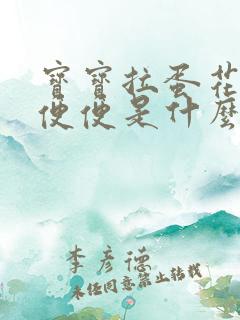 寶寶拉蛋花
便便是什麼
李彥德
未經同意禁止轉載